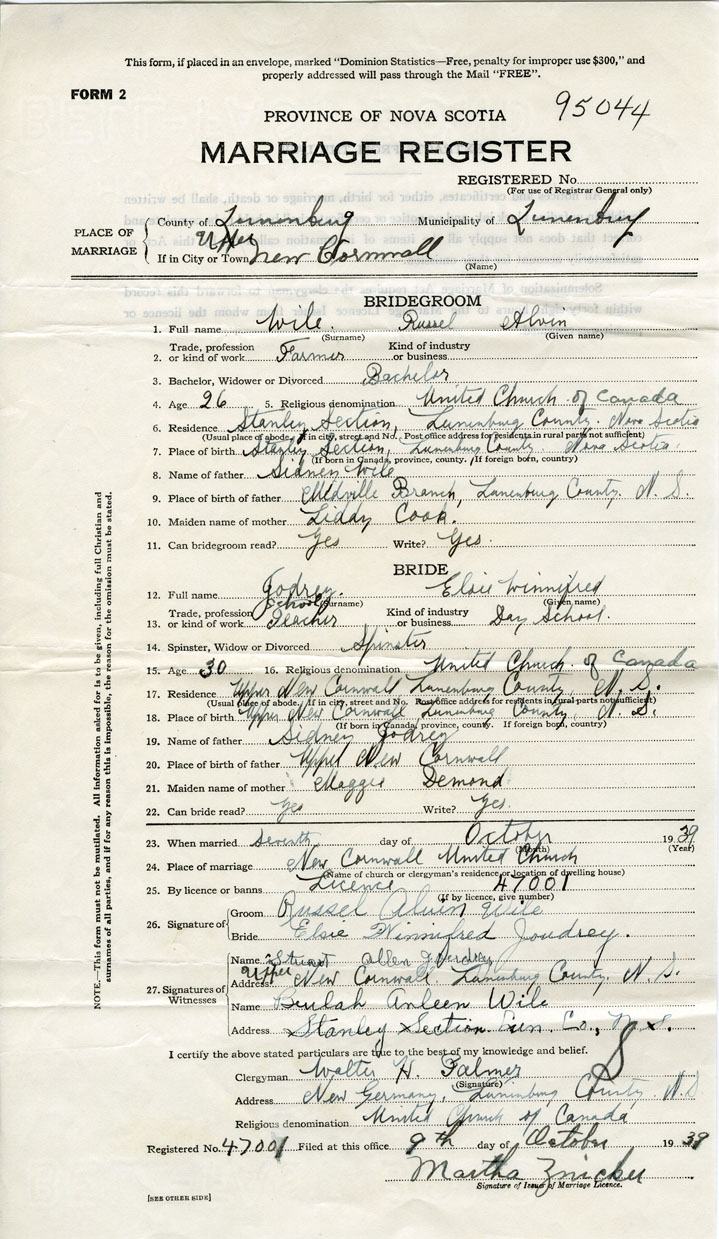 This form, if placed in an envelope, marked "Dominion Statistics—Free, penalty for improper use $300," and
properly addressed will pass through the Mail "FREE".
FORM 2
95044
PROVINCE OF NOVA SCOTIA
MARRIAGE REGISTER
REGISTERED No.
(For use of Registrar General only)
PLACE OF MARRIAGE
County of Lunenburg Municipality of Lunenburg
If in City or Town Upper New Cornwall
(Name)
BRIDEGROOM
1. Full name Wile Russel Alvin
(Surname) (Given name)
2. Trade, profession or kind of work Farmer Kind of industry or business
3. Bachelor, Widower or Divorced Bachelor
4. Age 26 5. Religious denomination United Church of Canada
6. Residence Stanley Section, Lunenburg County. Nova Scotia
(Usual place of abode. If in city, street and No. Post office address for residents in rural parts not sufficient)
7. Place of birth Stanley Section, Lunenburg County. Nova Scotia.
(If born in Canada, province, county. If foreign born, country)
8. Name of father Sidney Wile
9. Place of birth of father Midville Branch, Lunenburg County. N. S.
10. Maiden name of mother Liddy Cook.
11. Can bridegroom read? Yes Write? Yes.
BRIDE
12. Full name Jodrey. Elsie Winnifred
(Surname) (Given name)
13. Trade, profession or kind of work School Teacher Kind of industry or business Day School.
14. Spinster, Widow or Divorced Spinster
15. Age 30 16. Religious denomination United Church of Canada
17. Residence Upper New Cornwall Lunenburg County N. S.
(Usual place of abode. If in city, street and No. Post office address for residents in rural parts not sufficient)
18. Place of birth Upper New Cornwall, Lunenburg County, N. S.
(If born in Canada, province, county. If foreign born, country)
19. Name of father Sidney Jodrey
20. Place of birth of father Upper New Cornwall
21. Maiden name of mother Maggie Demond
22. Can bride read? Yes Write? Yes.
23. When married Seventh day of October 1939
(Month) (Year)
24. Place of marriage New Cornwall United Church
(Name of church or clergyman's residence or location of dwelling house)
25. By licence or banns Licence 47001
(If by licence, give number)
26. Signature of
Groom Russel Alvin Wile
Bride Elsie Winnifred Joudrey.
27. Signatures of Witnesses
Name Stuart Allen
Address Upper New Cornwall. Lunenburg County, N. S.
Name Beulah Arleen Wile
Address Stanley Section Lun. Co., N. S.
I certify the above stated particulars are true to the best of my knowledge and belief.
Clergyman Walter H. Palmer
(Signature)
Address New Germany, Lunenburg County, N. S
Religious denomination United Church of Canada
Registered No. 47001 Filed at this office 9th day of October 1939
Martha Zwicker
Signature of Issuer of Marriage Licence.
[SEE OTHER SIDE]
NOTE.—This form must not be mutilated. All information asked for is to be given, including full Christian and
surnames of all parties, and if for any reason this is impossible, the reason for the omission must be stated.